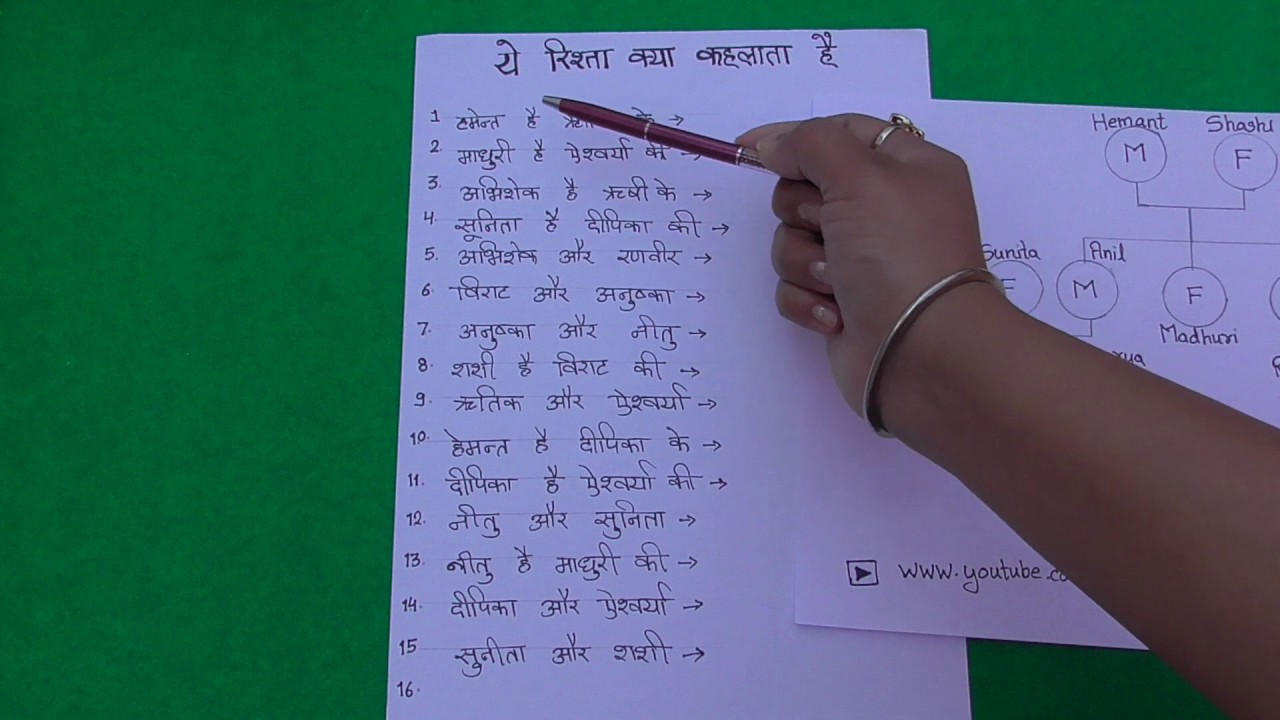 ये रिश्ता क्या कहलाता है
1 हेमन्त है के →
2. माधुरी है ऐश्वर्या की →
3. अभिशेक है ऋषी के →
4. सूनिता है दीपिका की →
5. अभिशेक और रणवीर →
6. विराट और अनुष्का →
7. अनुष्का और नीतु →
8. शशी है विराट की →
9. ऋतिक और ऐश्वर्या →
10. हेमन्त है दीपिका के →
11. दीपिका है ऐश्वर्या की →
12. नीतु और सुनिता →
13. नीतु है माधुरी की →
14. दीपिका और ऐश्वर्या →
15 सुनीता और शशी →
16.
Hemant Shashi
M F
Sunita Anil
F M F
Madhuri
www.youtube.